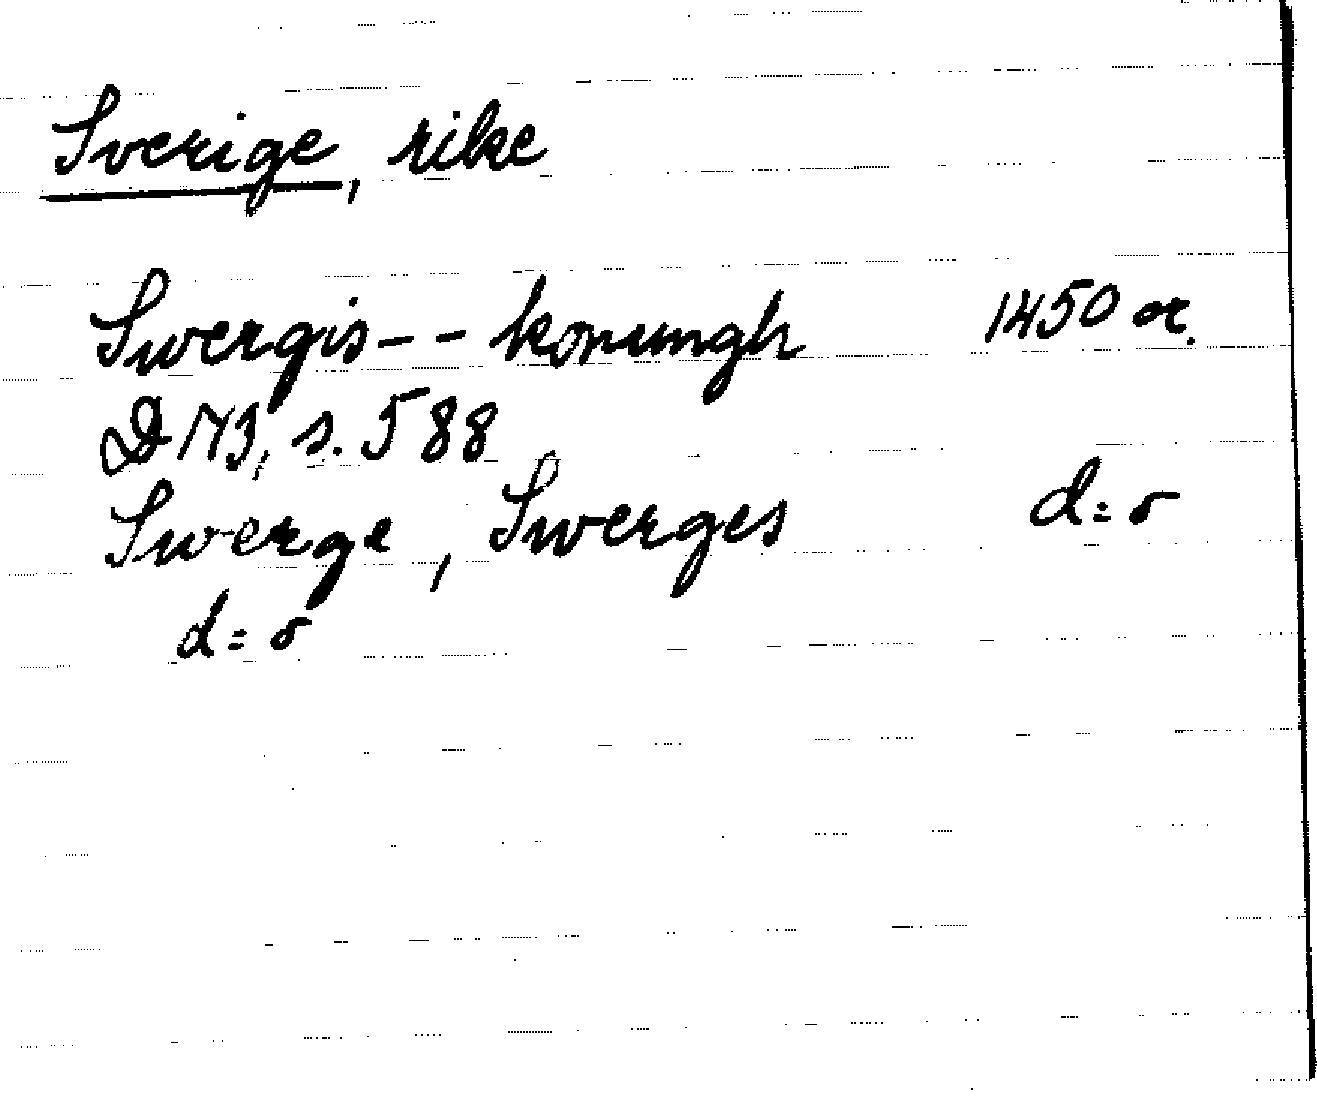 Sverige, rike
Swergis-- konungh 1450 or.
DN3, s. 588
Swerge, Swerges d:o
d:o